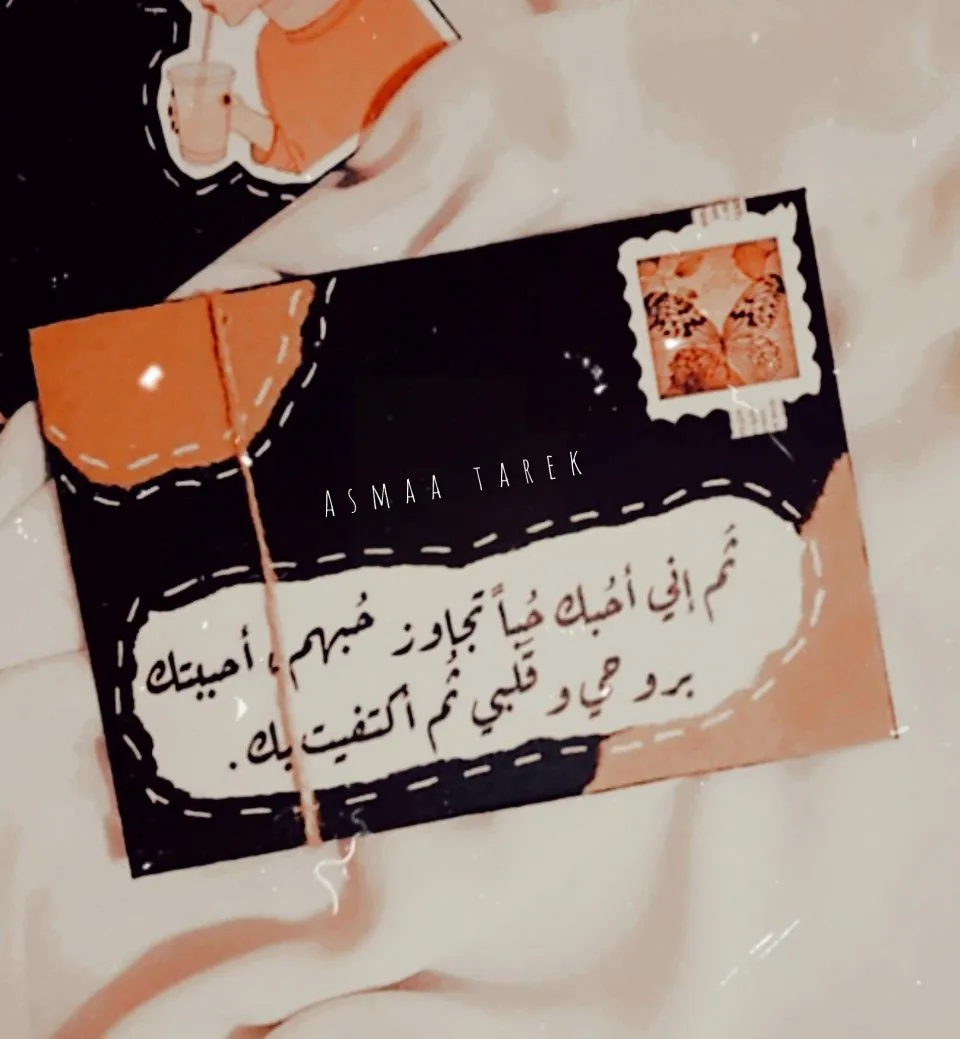 ASMAA TAREK
ثُم إني أحُبك حُباً تجاوز حُبهم، أحببتك
بروحي و قَلبي ثُم أكتفيت بك.